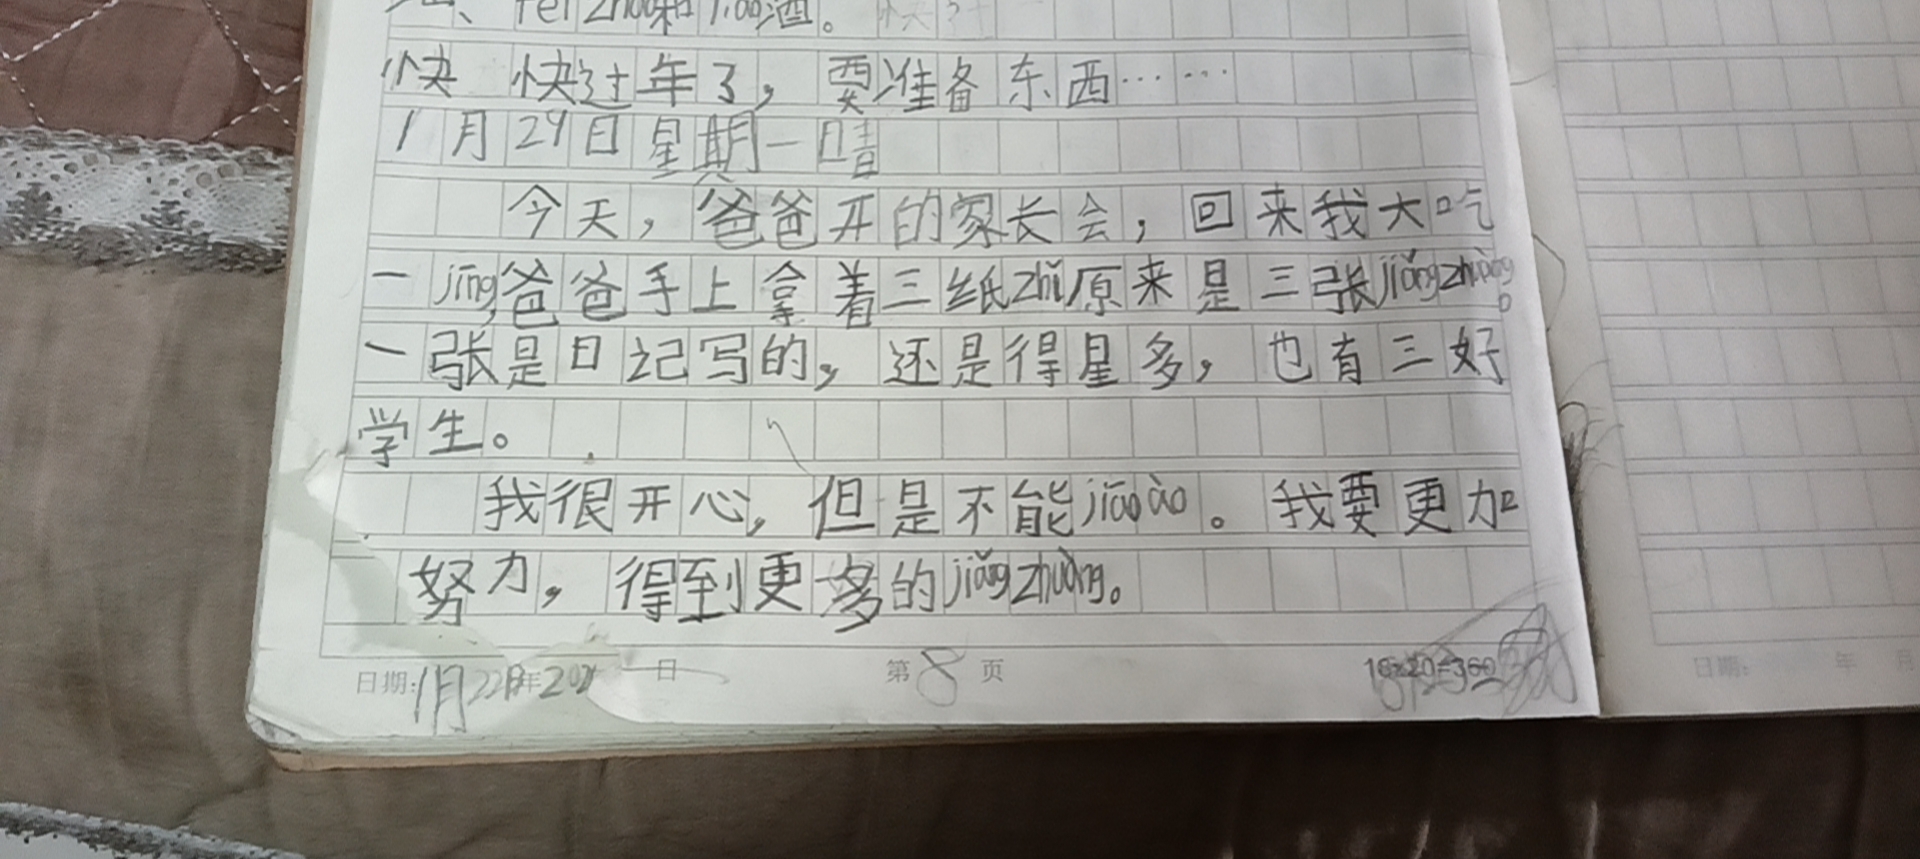 féi zhào和jiào酒。
快 快过年了，要准备东西……
1月29日星期一晴
今天，爸爸开的家长会，回来我大吃
一jīng,爸爸手上拿着三纸zhǐ原来是三张jiǎngzhuàng。
一张是日记写的，还是得星多，也有三好
学生。
我很开心，但是不能jiāoào。我要更加
努力，得到更多的jiǎngzhuàng。
日期:1月22日年202 日 第8页 18×20=360
日期: 年 月